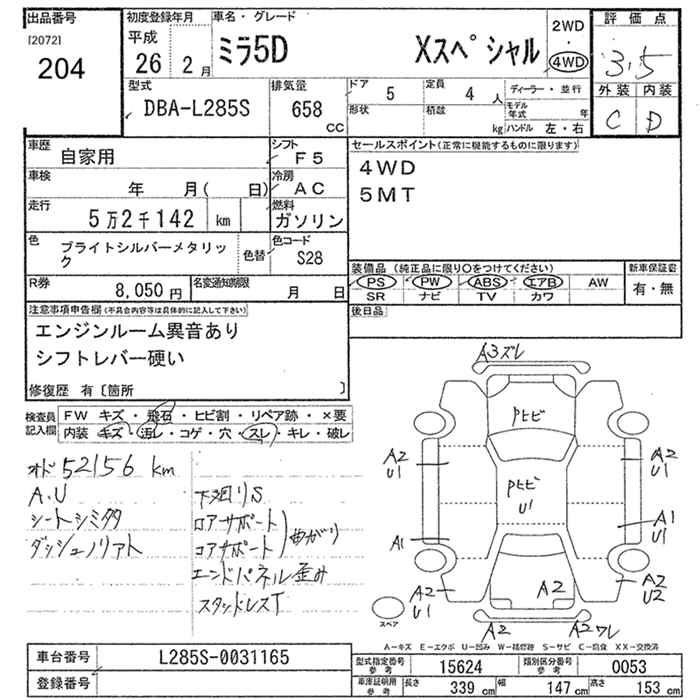 出品番号
[2072]
204
初度登録年月
平成
26 2 月
車名・グレード
ミラ5D Xスペシャル
2WD
・
4WD
評価点
3.5
外装 内装
C D
型式
DBA-L285S
排気量
658 CC
ドア 5
定員 4 人
形状
積載 kg
ディーラー・並行
モデル年式 年
ハンドル 左・右
車歴 自家用
シフト F5
車検 年 月( 日)
冷房 AC
走行 5万2千142 km
燃料 ガソリン
色 ブライトシルバーメタリック
色替
色コード S28
R券 8,050 円
名変通知期限 月 日
セールスポイント(正常に機能するものに限ります)
4WD
5MT
装備品 (純正品に限り○をつけてください)
PS PW ABS エアB AW
SR ナビ TV カワ
新車保証書
有・無
後日品
注意事項申告欄(不具合内容等は具体的に記入して下さい)
エンジンルーム異音あり
シフトレバー硬い
修復歴 有〔箇所 〕
検査員記入欄
FW キズ・飛石・ヒビ割・リペア跡・×要
内装 キズ・汚レ・コゲ・穴・スレ・キレ・破レ
オド 52156 km
A.U
シートシミタタ
ダッシュノリアト
下廻りS
ロアーサポート
コアサポート
曲がり
エンドパネル歪み
スタッドレスT
A3ズレ
Pヒビ
Pヒビ
U1
A2
U1
A2
U1
A1
A1
U1
A2
U1
A2
U2
A2
A2
A2ワレ
スペア
A-キズ E-エクボ U-凹み W-補修跡 S-サビ C-腐食 XX-交換済
車台番号 L285S-0031165
登録番号
型式指定番号 参考 15624
類別区分番号 参考 0053
車庫証明用 参考 長さ 339 cm 幅 147 cm 高さ 153 cm